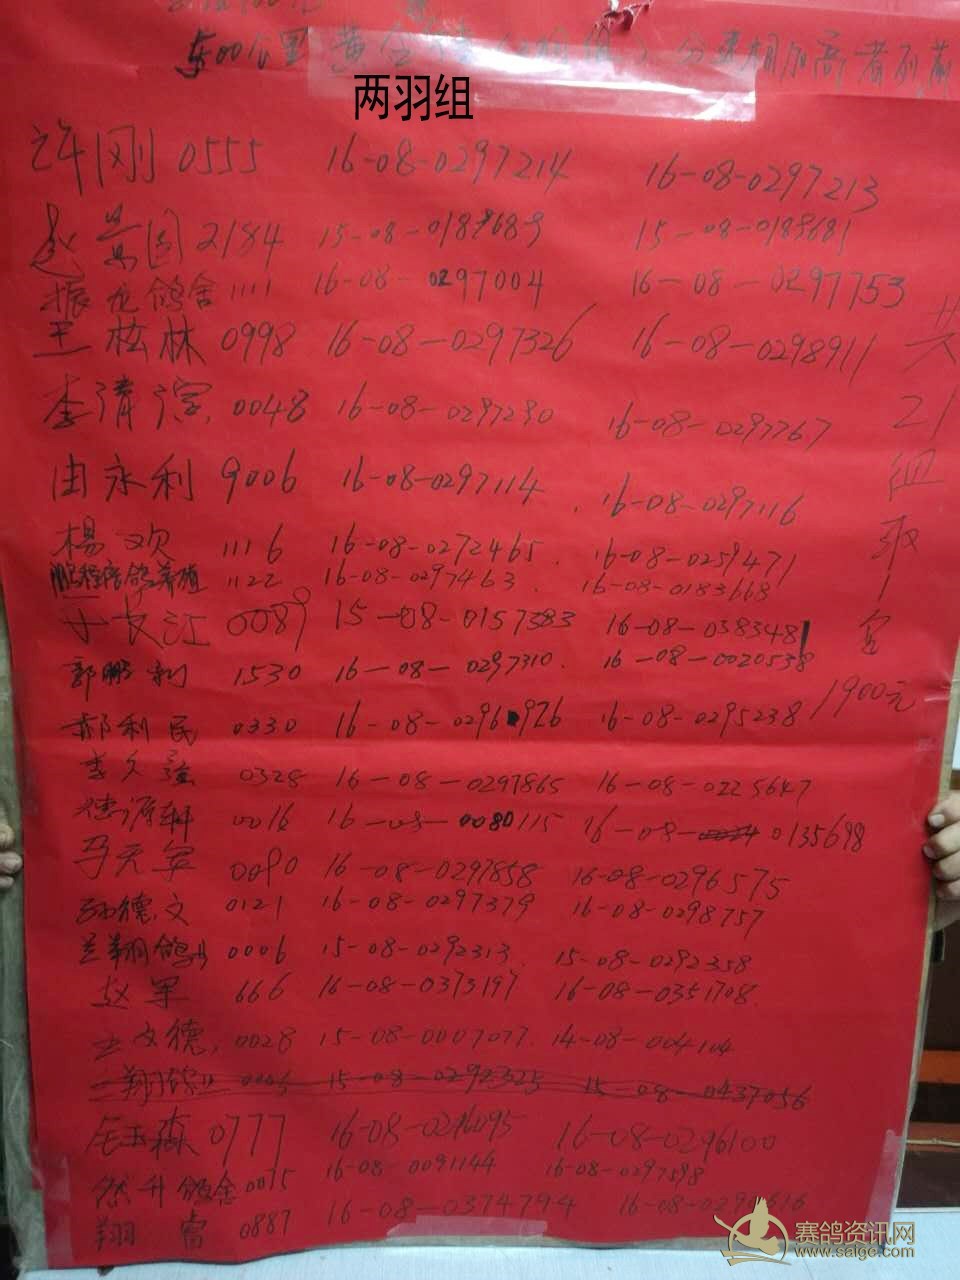 500公里黄金大奖（二羽组）分速相加高者列前
两羽组
许刚 0555 16-08-0297214 16-08-0297213
赵景国 2184 15-08-0189689 15-08-0189681
振龙鸽舍 1111 16-08-0297004 16-08-0297753
王松林 0998 16-08-0297326 16-08-0298911
李清 0048 16-08-0297290 16-08-0297767
由永利 9006 16-08-0297114 16-08-0297116
杨欢 1116 16-08-0272465 16-08-0259471
鹏程信鸽养殖 1122 16-08-0297463 16-08-0183668
于长江 0089 15-08-0157383 16-08-0383481
郭鹏利 1530 16-08-0297310 16-08-0020538
郝利民 0330 16-08-0296926 16-08-0295238
李久强 0328 16-08-0297865 16-08-0225647
德源轩 0016 16-08-0080115 16-08-0135698
马天军 0090 16-08-0297858 16-08-0296575
孙德文 0121 16-08-0297379 16-08-0298757
兰翔鸽业 0006 15-08-0292313 15-08-0292358
赵军 666 16-08-0373197 16-08-0351708
王文德 0028 15-08-0007077 14-08-004104
兰翔鸽业 0006 15-08-0292325 15-08-0437056
玉森 0777 16-08-0296095 16-08-0296100
然升鸽舍 0015 16-08-0091144 16-08-0297598
翔睿 0887 16-08-0374794 16-08-0290616
共21组取1名
1900元
赛鸽资讯网
www.saigc.com